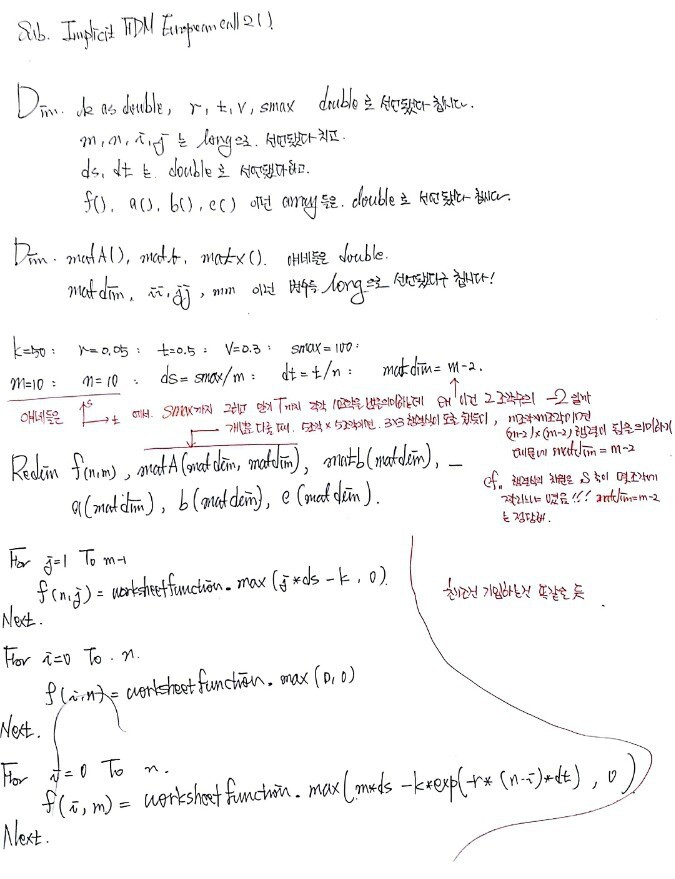 Sub. Implicit FDM European call 2( )
Dim. k as double, r, t, v, smax double로 선언됐다 칩시다.
m, n, i, j 는 long으로. 선언됐다 치고.
ds, dt 는. double로 선언됐다하고.
f( ), a( ), b( ), c( ) 이런 array들은. double로 선언됐다 칩시다.
Dim. matA( ), matb, matx( ). 얘네들은 double.
matdim, ii, jj, mm 이런 변수들 long으로 선언됐다구 칩시다!
k=50 : r=0.05 : t=0.5 : V=0.3 : smax=100 :
m=10 : n=10 : ds=smax/m : dt=t/n : matdim=m-2.
얘네들은 s t 에서. smax까지 그리고 만기 T까지 각각 10조각 낸다는 의미하는데 왜 이건 2조각수의 -2 일까
개념을 다룰 때. 5조각×5조각이면. 3×3 행렬식이 도출 됐듯이, m조각×m조각이면
(m-2)×(m-2) 행렬이 됨을 의미하기
때문에 matdim = m-2
Redim f(n,m), matA(matdim, matdim), matb(matdim), _
a(matdim), b(matdim), c(matdim).
cf. 행렬식의 차원은 S축이 몇조각
!!! matdim=m-2
는 정당해.
For j=1 To m-1
f(n,j) = worksheetfunction.max(j*ds-k, 0)
Next.
초기조건 기입하는건 똑같을 듯.
For i=0 To n.
f(i,n) = worksheetfunction.max(0,0)
Next.
For i=0 To n.
f(i,m) = worksheetfunction.max(m*ds-k*exp(-r*(n-i)*dt), 0)
Next.